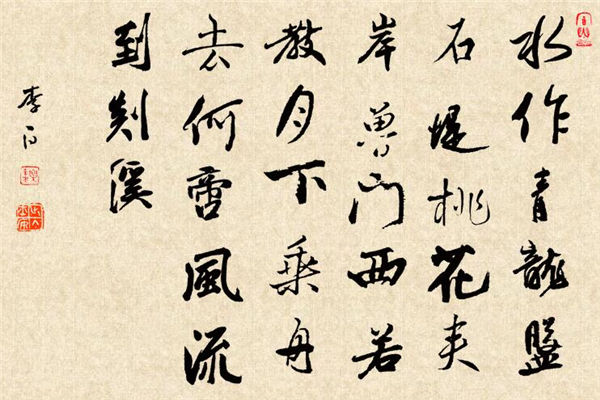 水作青龍盤
石堤桃花夾
岸魯門西若
教月下乘舟
去何啻風流
到剡溪
李白